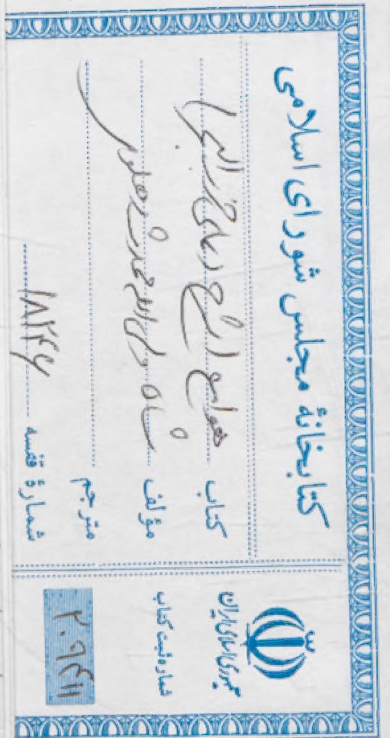 کتابخانهٔ مجلس شورای اسلامی
کتاب هوامع (شرح دعای حزب البحر)
مؤلف شاه ولی الله محدث دهلوی
مترجم
شمارهٔ قفسه ۱۸۲۴۶
جمهوری اسلامی ایران
شماره ثبت کتاب